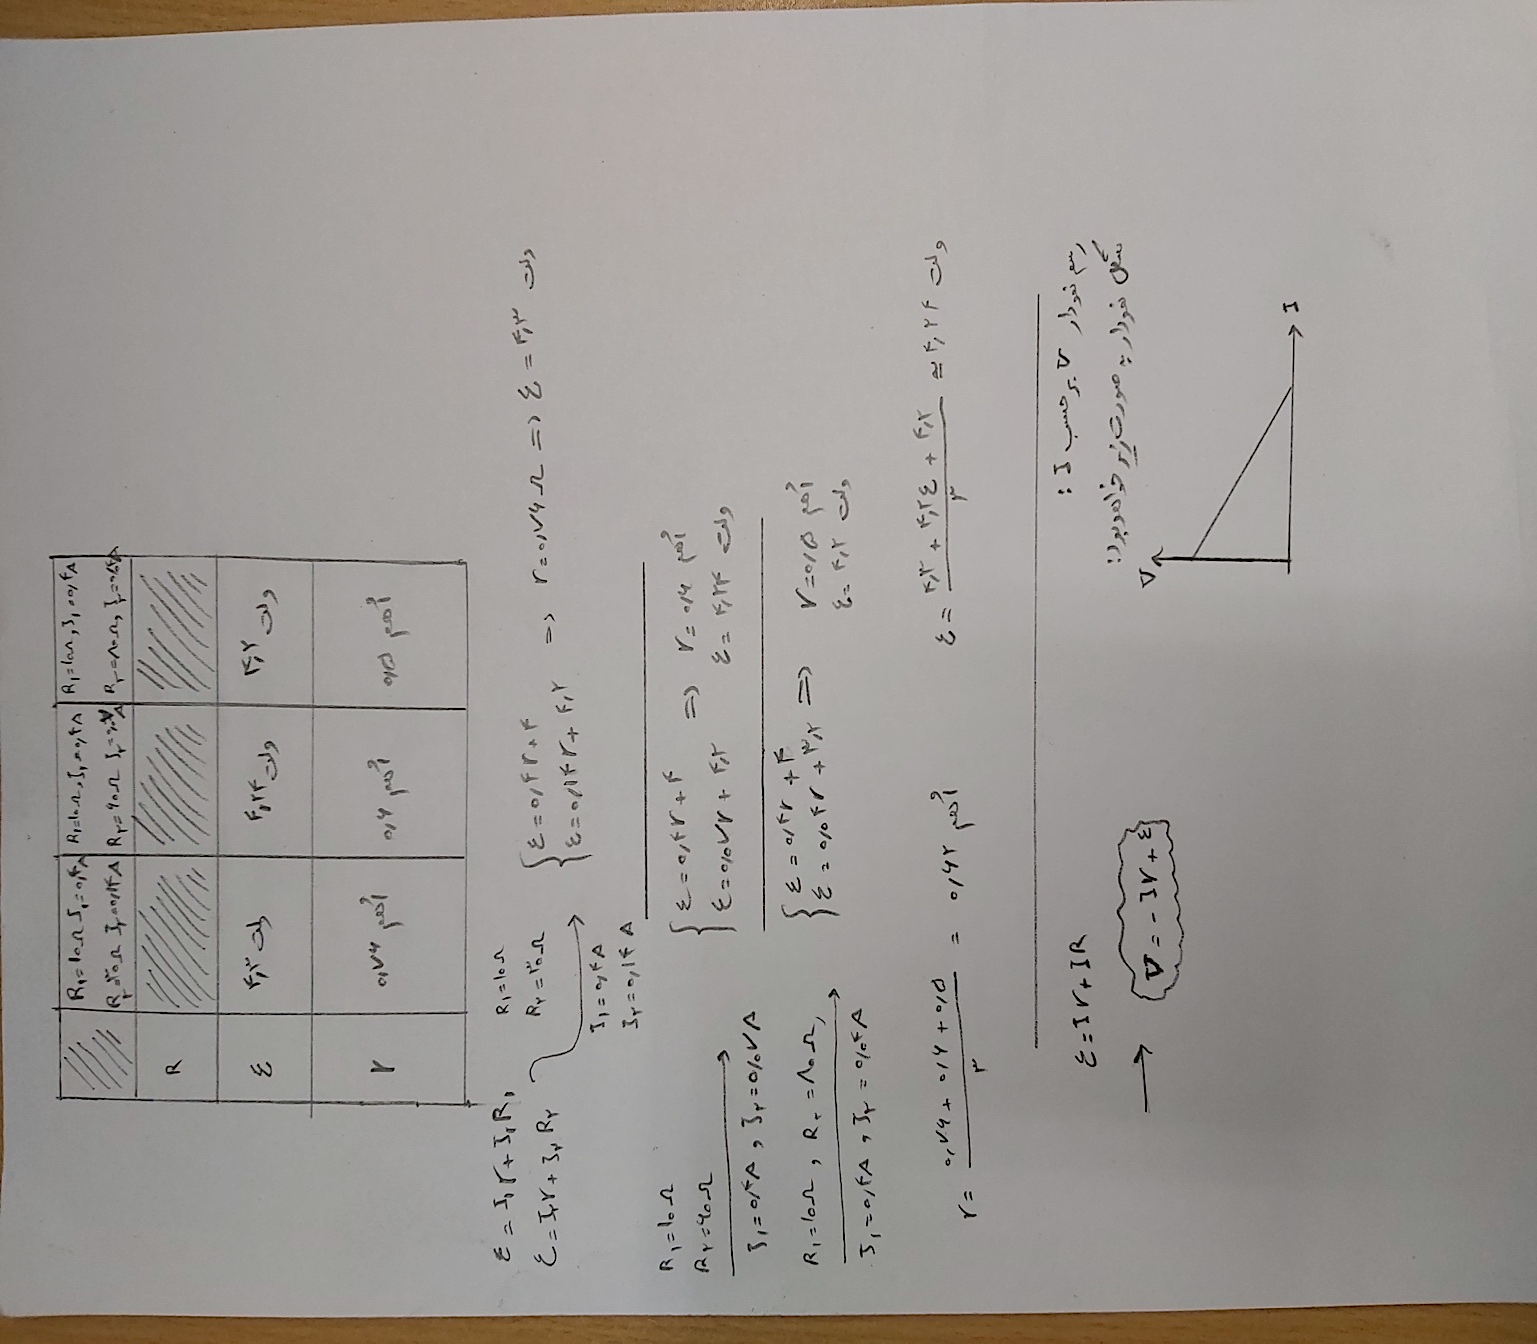 R₁=۱۰Ω I₁=۰,۴A
R₂=۳۰Ω I₂=۰,۱۴A
R₁=۱۰Ω, I₁=۰,۴A
R₂=۶۰Ω I₂=۰,۰۷A
R₁=۱۰Ω, I₁=۰,۴A
R₂=۸۰Ω, I₂=۰,۰۴A
R
ε ۴,۳ ولت ۴,۲۴ ولت ۴,۲ ولت
r ۰,۷۶ اُهم ۰,۶ اُهم ۰,۵ اُهم
ε = I₁r + I₁R₁
ε = I₂r + I₂R₂
R₁=۱۰Ω
R₂=۳۰Ω
I₁=۰,۴A
I₂=۰,۱۴A
{ ε = ۰,۴r + ۴
ε = ۰,۱۴r + ۴,۲ => r=۰,۷۶Ω => ε = ۴,۳ ولت
R₁=۱۰Ω
R₂=۶۰Ω
I₁=۰,۴A , I₂=۰,۰۷A
{ ε = ۰,۴r + ۴
ε = ۰,۰۷r + ۴,۲ => r = ۰,۶ اُهم
ε = ۴,۲۴ ولت
R₁=۱۰Ω , R₂=۸۰Ω,
I₁=۰,۴A , I₂=۰,۰۴A
{ ε = ۰,۴r + ۴
ε = ۰,۰۴r + ۳,۲ => r=۰,۵ اُهم
ε = ۴,۲ ولت
r = (۰,۷۶ + ۰,۶ + ۰,۵)/۳ = ۰,۶۲ اُهم
ε = (۴,۳ + ۴,۲٤ + ۴,۲)/۳ ≈ ۴,۲۴ ولت
ε = Ir + IR
→ V = -Ir + ε
رسم نمودار V بر حسب I :
شکل نمودار به صورت زیر خواهد بود:
V
I